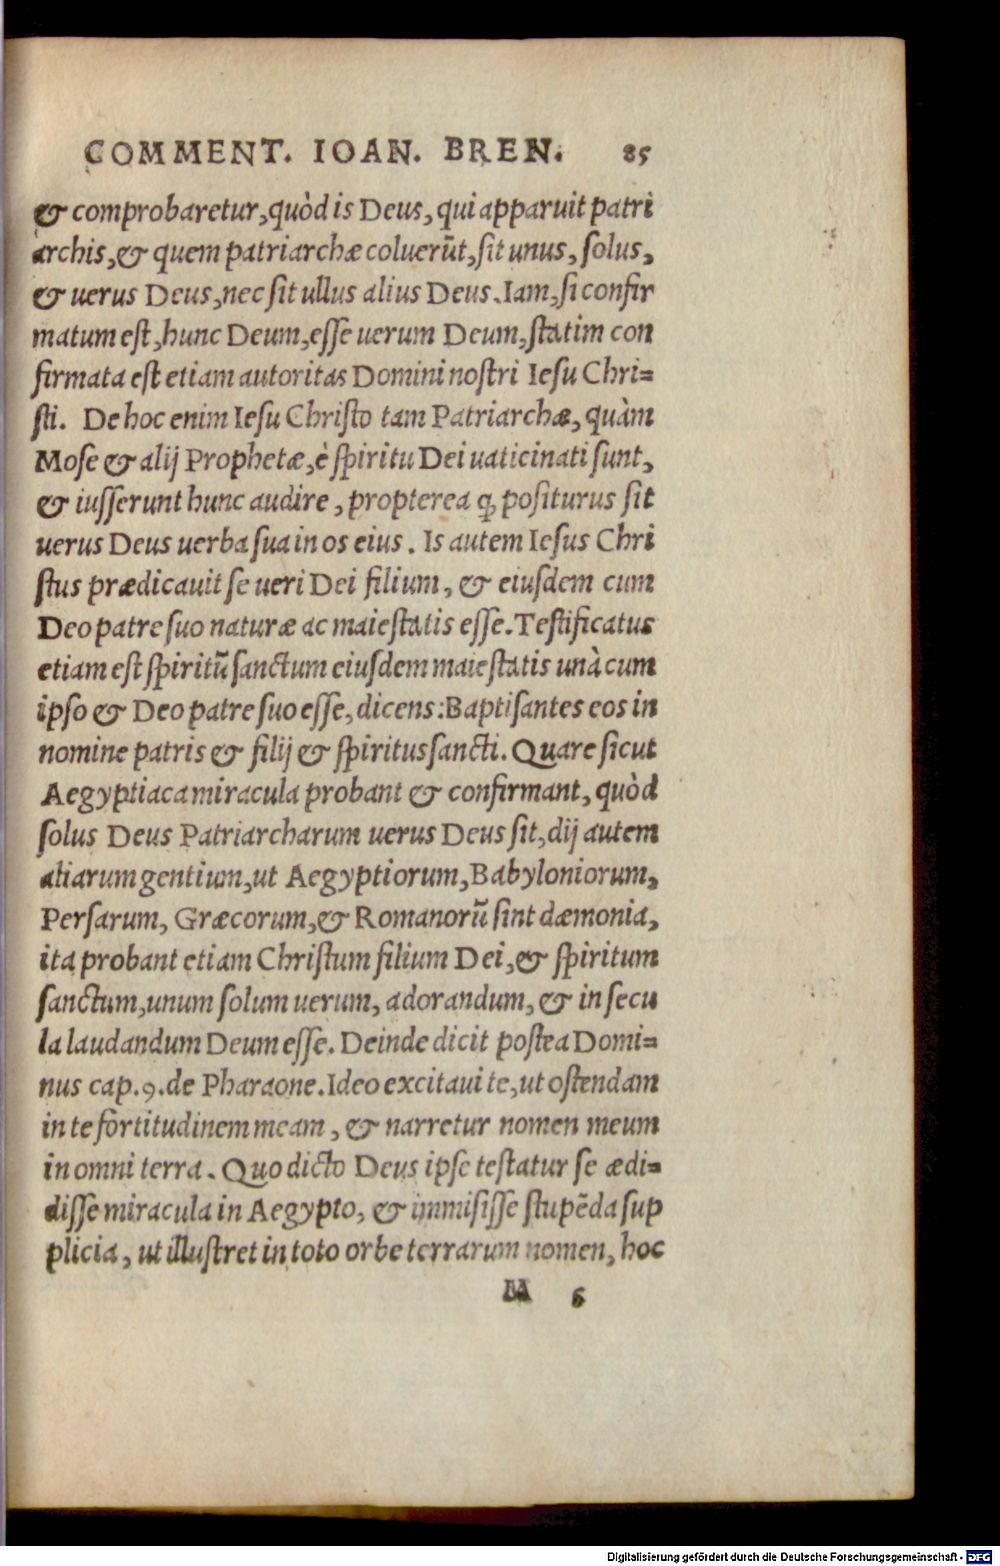 COMMENT. IOAN. BREN. 85
& comprobaretur, quòd is Deus, qui apparuit patri
archis, & quem patriarchæ coluerūt, sit unus, solus,
& uerus Deus, nec sit ullus alius Deus. Iam, si confir
matum est, hunc Deum, esse uerum Deum, statim con
firmata est etiam autoritas Domini nostri Iesu Chri=
sti. De hoc enim Iesu Christo tam Patriarchæ, quàm
Mose & alij Prophetæ, è spiritu Dei uaticinati sunt,
& iusserunt hunc audire, propterea ꝙ positurus sit
uerus Deus uerba sua in os eius. Is autem Iesus Chri
stus prædicauit se ueri Dei filium, & eiusdem cum
Deo patre suo naturæ ac maiestatis esse. Testificatus
etiam est spiritū sanctum eiusdem maiestatis unà cum
ipso & Deo patre suo esse, dicens: Baptisantes eos in
nomine patris & filij & spiritus sancti. Quare sicut
Aegyptiaca miracula probant & confirmant, quòd
solus Deus Patriarcharum uerus Deus sit, dij autem
aliarum gentium, ut Aegyptiorum, Babyloniorum,
Persarum, Græcorum, & Romanorū sint dæmonia,
ita probant etiam Christum filium Dei, & spiritum
sanctum, unum solum uerum, adorandum, & in secu
la laudandum Deum esse. Deinde dicit postea Domi=
nus cap. 9. de Pharaone. Ideo excitaui te, ut ostendam
in te fortitudinem meam, & narretur nomen meum
in omni terra. Quo dicto Deus ipse testatur se ædi=
disse miracula in Aegypto, & immisisse stupēda sup
plicia, ut illustret in toto orbe terrarum nomen, hoc
M 5
Digitalisierung gefördert durch die Deutsche Forschungsgemeinschaft - DFG